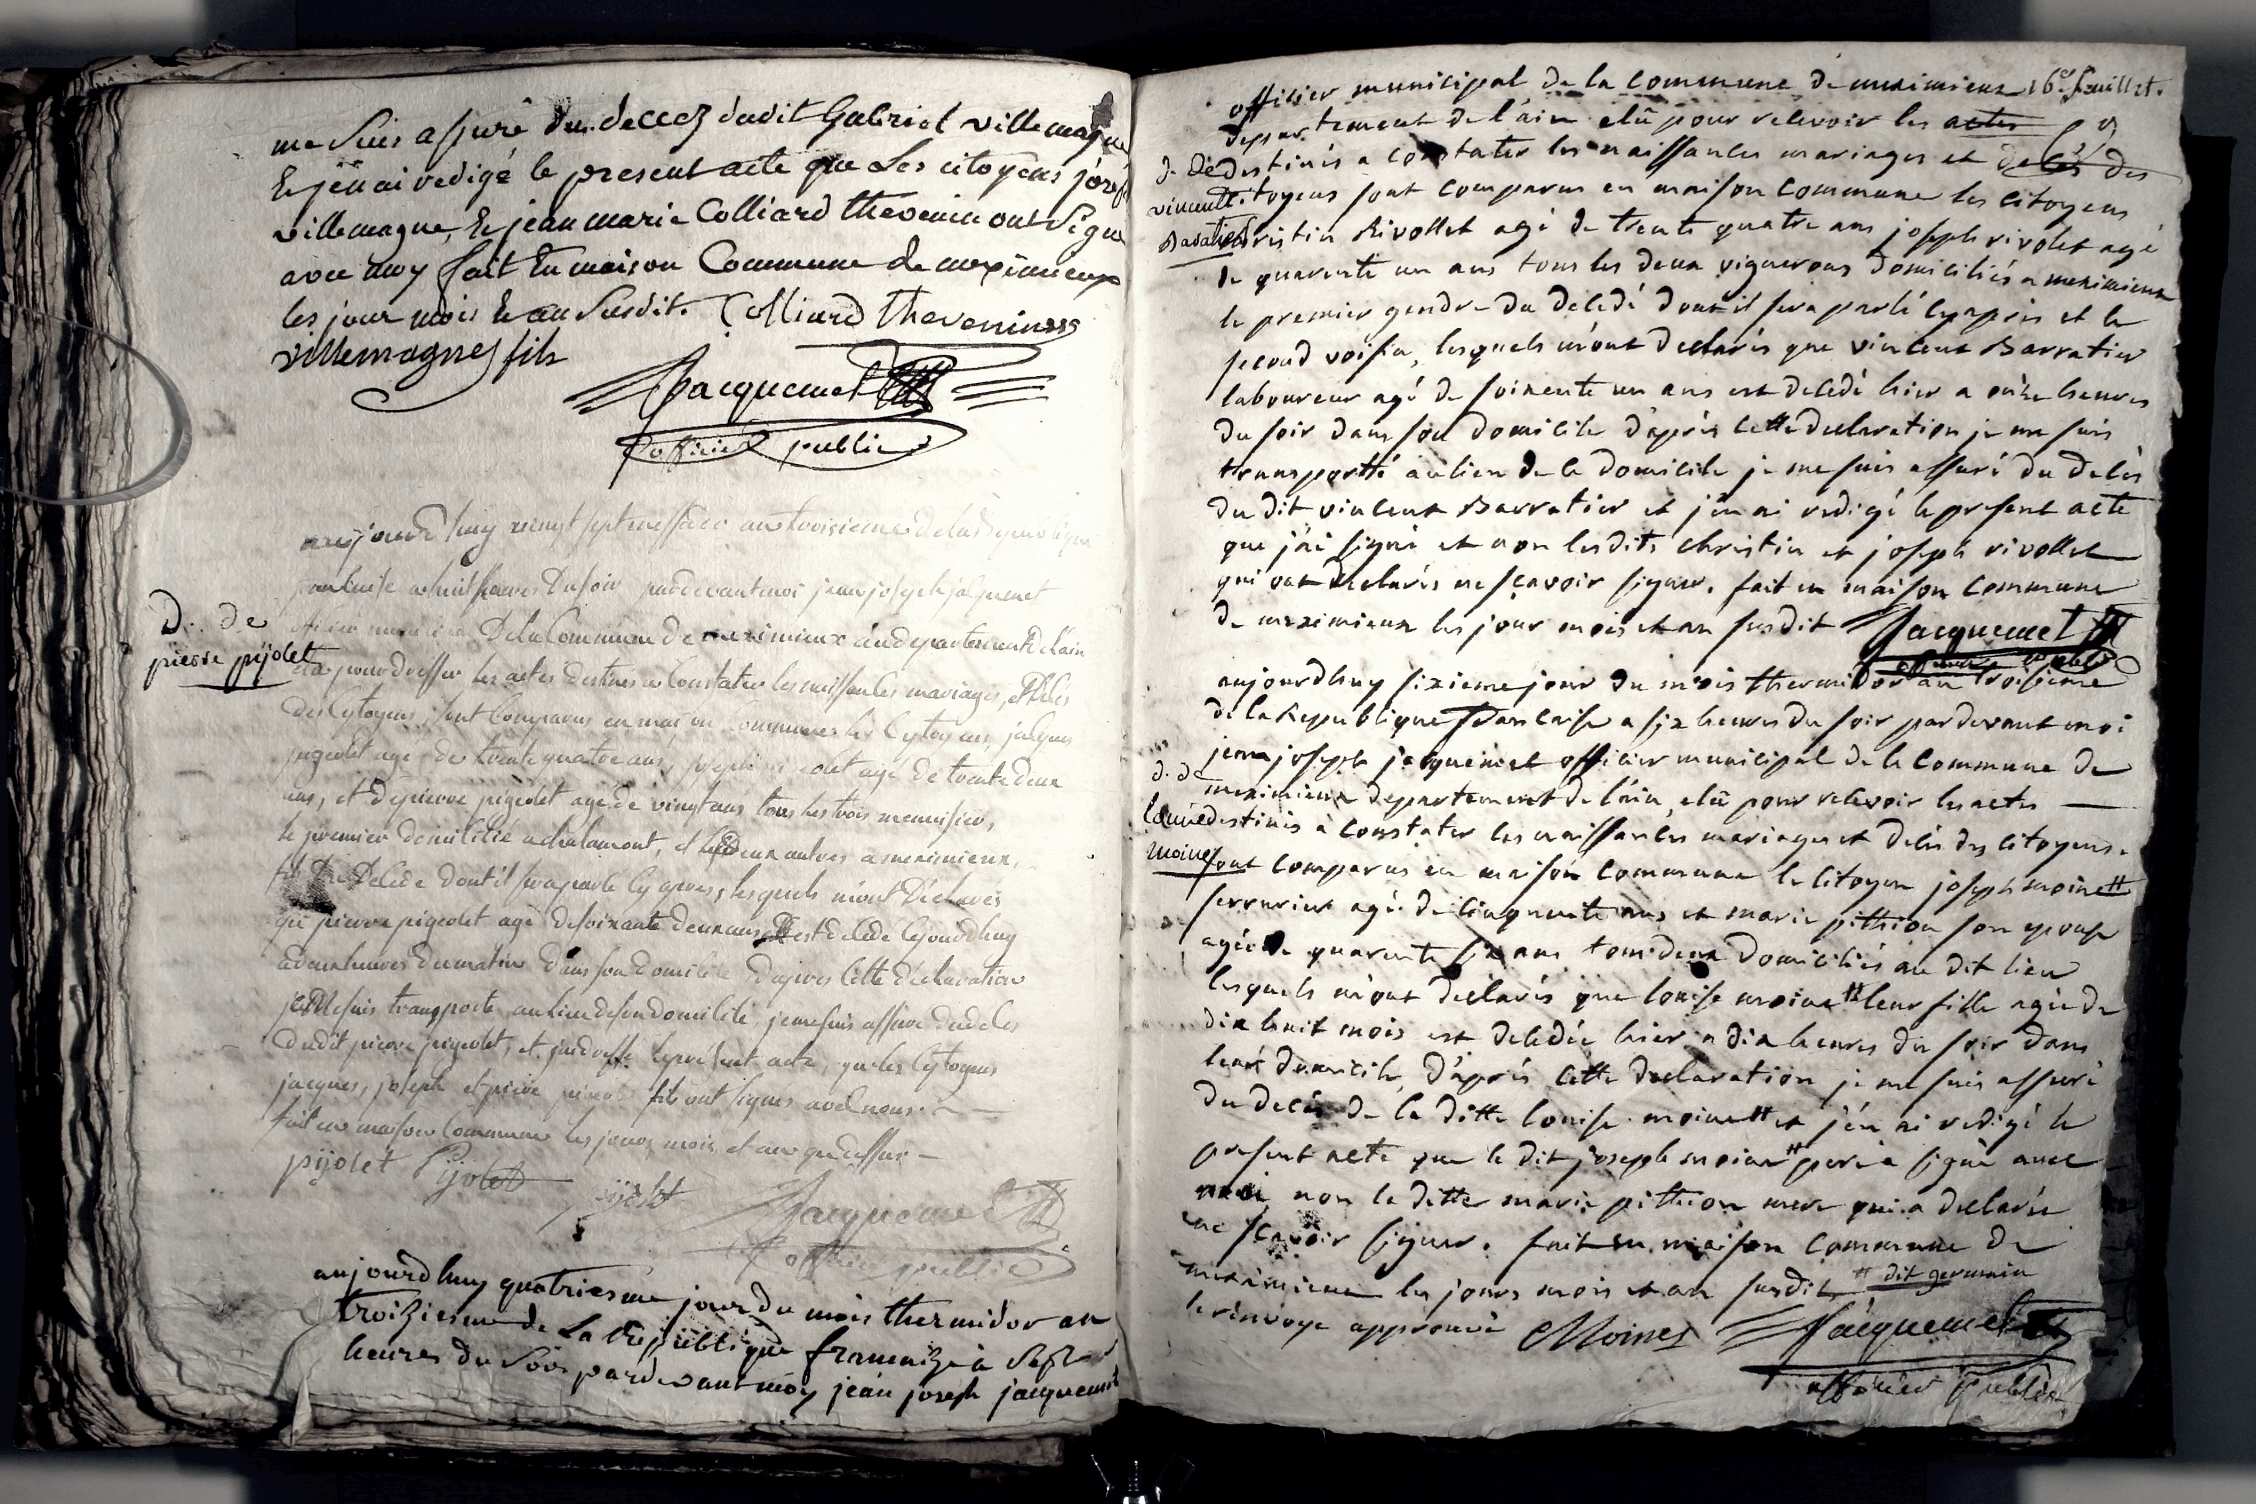 me suis assuré du decez dudit Gabriel villemagne
et jen ai redigé le present acte que Les citoyens josep
villemagne, et jean marie Colliard thevenin ont signé
avec moy fait en maison Commune de meximieux
les jour mois et an susdit. Colliard Thevenin
villemagne fils
Jacquemet
officier public
aujourd'huy vingt sept messidor an troisieme de la Republique
francaise a huit heures du soir pardevant moi jean joseph jacquemet
officier municipal De la Commune de meximieux au departement de l'ain
D. De
pierre pijolet
élu pour dresser les actes destinés a Constater les naissances mariages, et décès
des Cytoyens, sont Comparus en maison Communes les Cytoyens, jacques
pigeolet agé de trente quatre ans, joseph pigeolet agé de trente deux
ans, et de pierre pigeolet agé de vingt ans tous les trois menuisiers,
le premier domicilié a chalamont, et les deux autres a meximieux,
fils du Décédé dont il sera parlé cy apres, lesquels m'ont Déclarés
que pierre pigeolet agé de soixante deux ans est decedé cejourdhuy
a deux heures du matin Dans son Domicile D'apres Cette Déclaration
je me suis transporté au lieu de son domicile, je me suis assuré du deces
Dudit pierre pigeolet, et jai dressé le présent acte, que les Cytoyens
jacques, joseph et pierre pigeolet fils ont signés avec nous.
fait en maison Commune les jour, mois, et an que dessus
pijolet Pijolet pijolet
Jacquemet
officier public
aujourdhuy quatriesme jour du mois thermidor an
troiziesme de La République francaize à Sept
heures du Soir pardevant moy jean joseph jacquemet
officier municipal de la Commune de meximieux 16e. feuillet.
departement de l'ain elû pour recevoir les actes
d. de
vincent
Baratier
destinés a constater les naissances mariages et décès des
citoyens sont comparus en maison commune les citoyens
christin Rivollet agé de trente quatre ans joseph rivolet agé
de quarente un ans tous les deux vignerons domiciliés a meximieux
le premier gendre du decedé dont il sera parlé cy après et le
second voisin, lesquels m'ont declarés que vincent Barratier
laboureur agé de soixente un ans est decedé hier a onze heures
du soir dans son domicile d'après cette declaration je me suis
transporté au lieu de ce domicile je me suis assuré du decès
du dit vincent Barratier et j'en ai redigé le present acte
que j'ai signé et non lesdits christin et joseph rivollet
qui ont declarés ne scavoir signer. fait en maison commune
de meximieux les jour mois et an susdit Jacquemet
officier public
aujourdhuy sixieme jour du mois thermidor an troisieme
de la Republique francaise a six heures du soir par devant moi
jean joseph jacquemet officier municipal de la commune de
d. de
Louise
moine
meximieux departement de l'ain, elû pour recevoir les actes
destinés à constater les naissances mariages et decès des citoyens.
sont comparus en maison commune le citoyen joseph moine #
serrurier agé de cinquente ans et marie pithion son epouse
agée de quarente six ans tous deux domiciliés au dit lieu
lesquels m'ont declarés que louise moine # leur fille agée de
dix huit mois est decedée hier a dix heures du soir dans
leur domicile, d'après cette declaration je me suis assuré
du decès de la ditte louise moine # et j'en ai redigé le
present acte que le dit joseph moine # pere a signé avec
moi non la ditte marie pithion mere qui a declaré
ne scavoir signer. fait en maison commune de
meximieux les jours mois et an susdit # dit germain
le renvoye approuvé Moines Jacquemet
officier Public